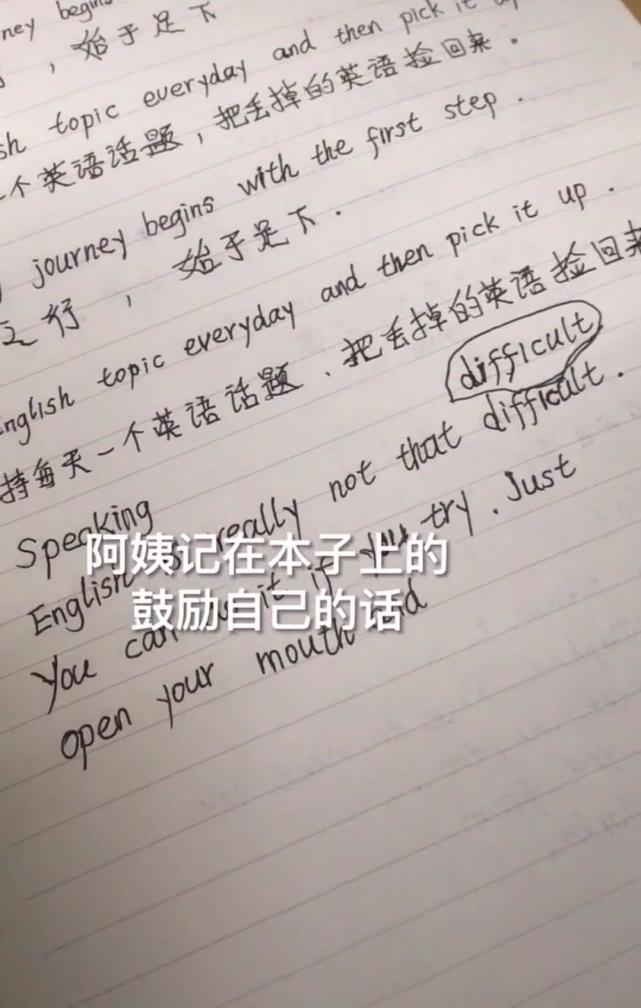 ney begins
, 始于足下
sh topic everyday and then pick it up
个英语话题，把丢掉的英语捡回来.
journey begins with the first step.
之行, 始于足下.
English topic everyday and then pick it up.
持每天一个英语话题、把丢掉的英语捡回来
difficult
Speaking
English really not that difficult.
You can it if you try. Just
open your mouth
阿姨记在本子上的
鼓励自己的话